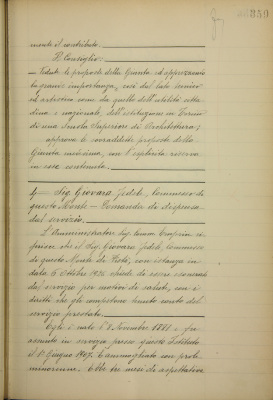 359
mente il contributo.
Il Consiglio:
— Vedute le proposte della Giunta ed apprezzando
la grande importanza, così dal lato tecnico
ed artistico come da quello dell'utilità citta-
dina e nazionale, dell'istituzione in Torino
di una Scuola Superiore di Architettura;
approva le sovradette proposte della
Giunta medesima, con l'esplicita riserva
in esse contenuta.
4 = Sig. Giovara Fedele, Commesso di
questo Monte = Domanda di dispensa
dal servizio.
L'Amministratore Sig. Comm.
riferisce che il Sig. Giovara Fedele, Commesso
di questo Monte di Pietà, con istanza in
data 6 Ottobre 1926 chiede di essere esonerato
dal servizio per motivi di salute, con i
diritti che gli competono tenuto conto del
servizio prestato.
Egli è nato l'8 Novembre 1881 e fu
assunto in servizio presso questo Istituto
il 1° Giugno 1907. È ammogliato con prole
minorenne. Ebbe tre mesi di aspettativa